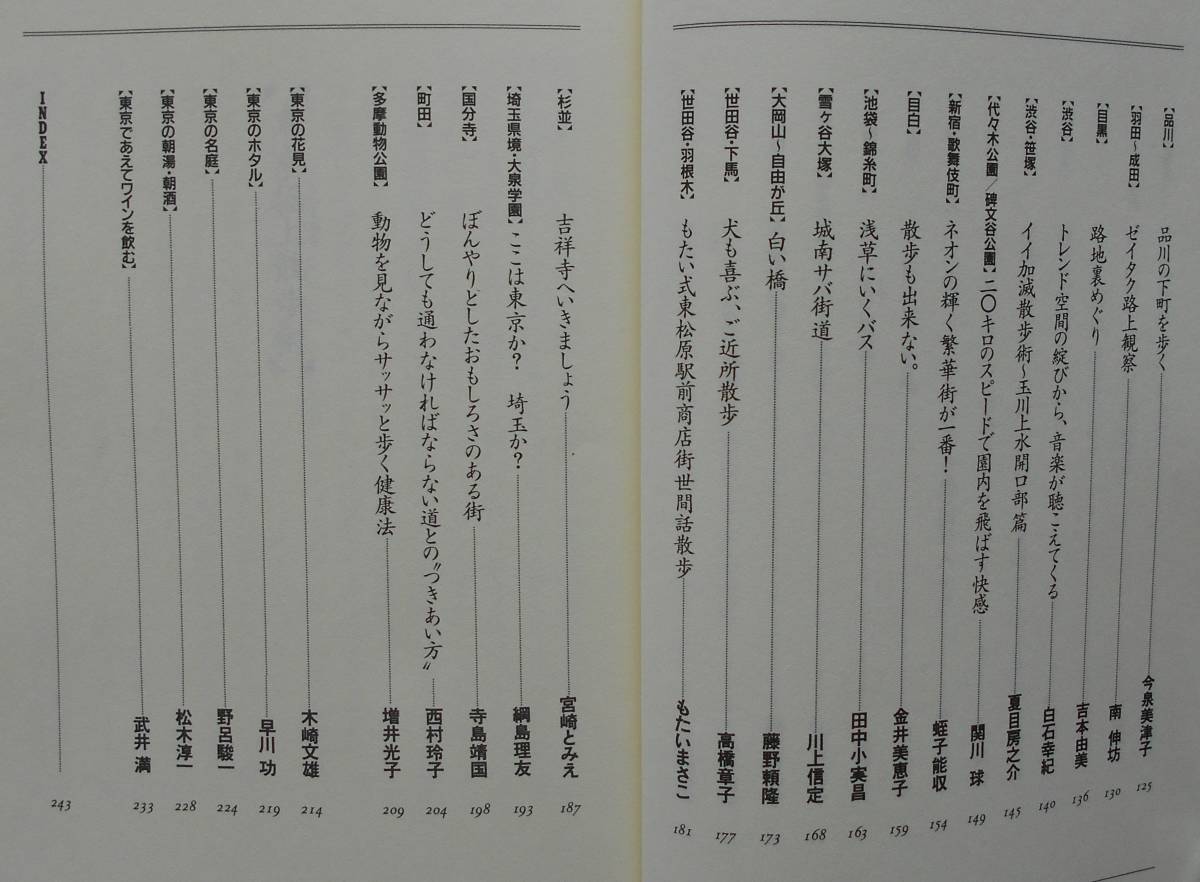 【品川】 品川の下町を歩く 今泉美津子 125
【羽田〜成田】 ゼイタク路上観察 南 伸坊 130
【目黒】 路地裏めぐり 吉本由美 136
【渋谷】 トレンド空間の綻びから、音楽が聴こえてくる 白石幸紀 140
【渋谷・笹塚】 イイ加減散歩術〜玉川上水開口部篇 夏目房之介 145
【代々木公園／碑文谷公園】 二〇キロのスピードで園内を飛ばす快感 関川 球 149
【新宿・歌舞伎町】 ネオンの輝く繁華街が一番！ 蛭子能収 154
【目白】 散歩も出来ない。 金井美恵子 159
【池袋〜錦糸町】 浅草にいくバス 田中小実昌 163
【雪ヶ谷大塚】 城南サバ街道 川上信定 168
【大岡山〜自由が丘】 白い橋 藤野頼隆 173
【世田谷・下馬】 犬も喜ぶ、ご近所散歩 高橋章子 177
【世田谷・羽根木】 もたい式東松原駅前商店街世間話散歩 もたいまさこ 181
【杉並】 吉祥寺へいきましょう 宮崎とみえ 187
【埼玉県境・大泉学園】 ここは東京か？ 埼玉か？ 綱島理友 193
【国分寺】 ぼんやりとしたおもしろさのある街 寺島靖国 198
【町田】 どうしても通わなければならない道との〝つきあい方〟 西村玲子 204
【多摩動物公園】 動物を見ながらサッサッと歩く健康法 増井光子 209
【東京の花見】 木崎文雄 214
【東京のホタル】 早川 功 219
【東京の名庭】 野呂駿一 224
【東京の朝湯・朝酒】 松木淳一 228
【東京であえてワインを飲む】 武井 満 233
INDEX 243